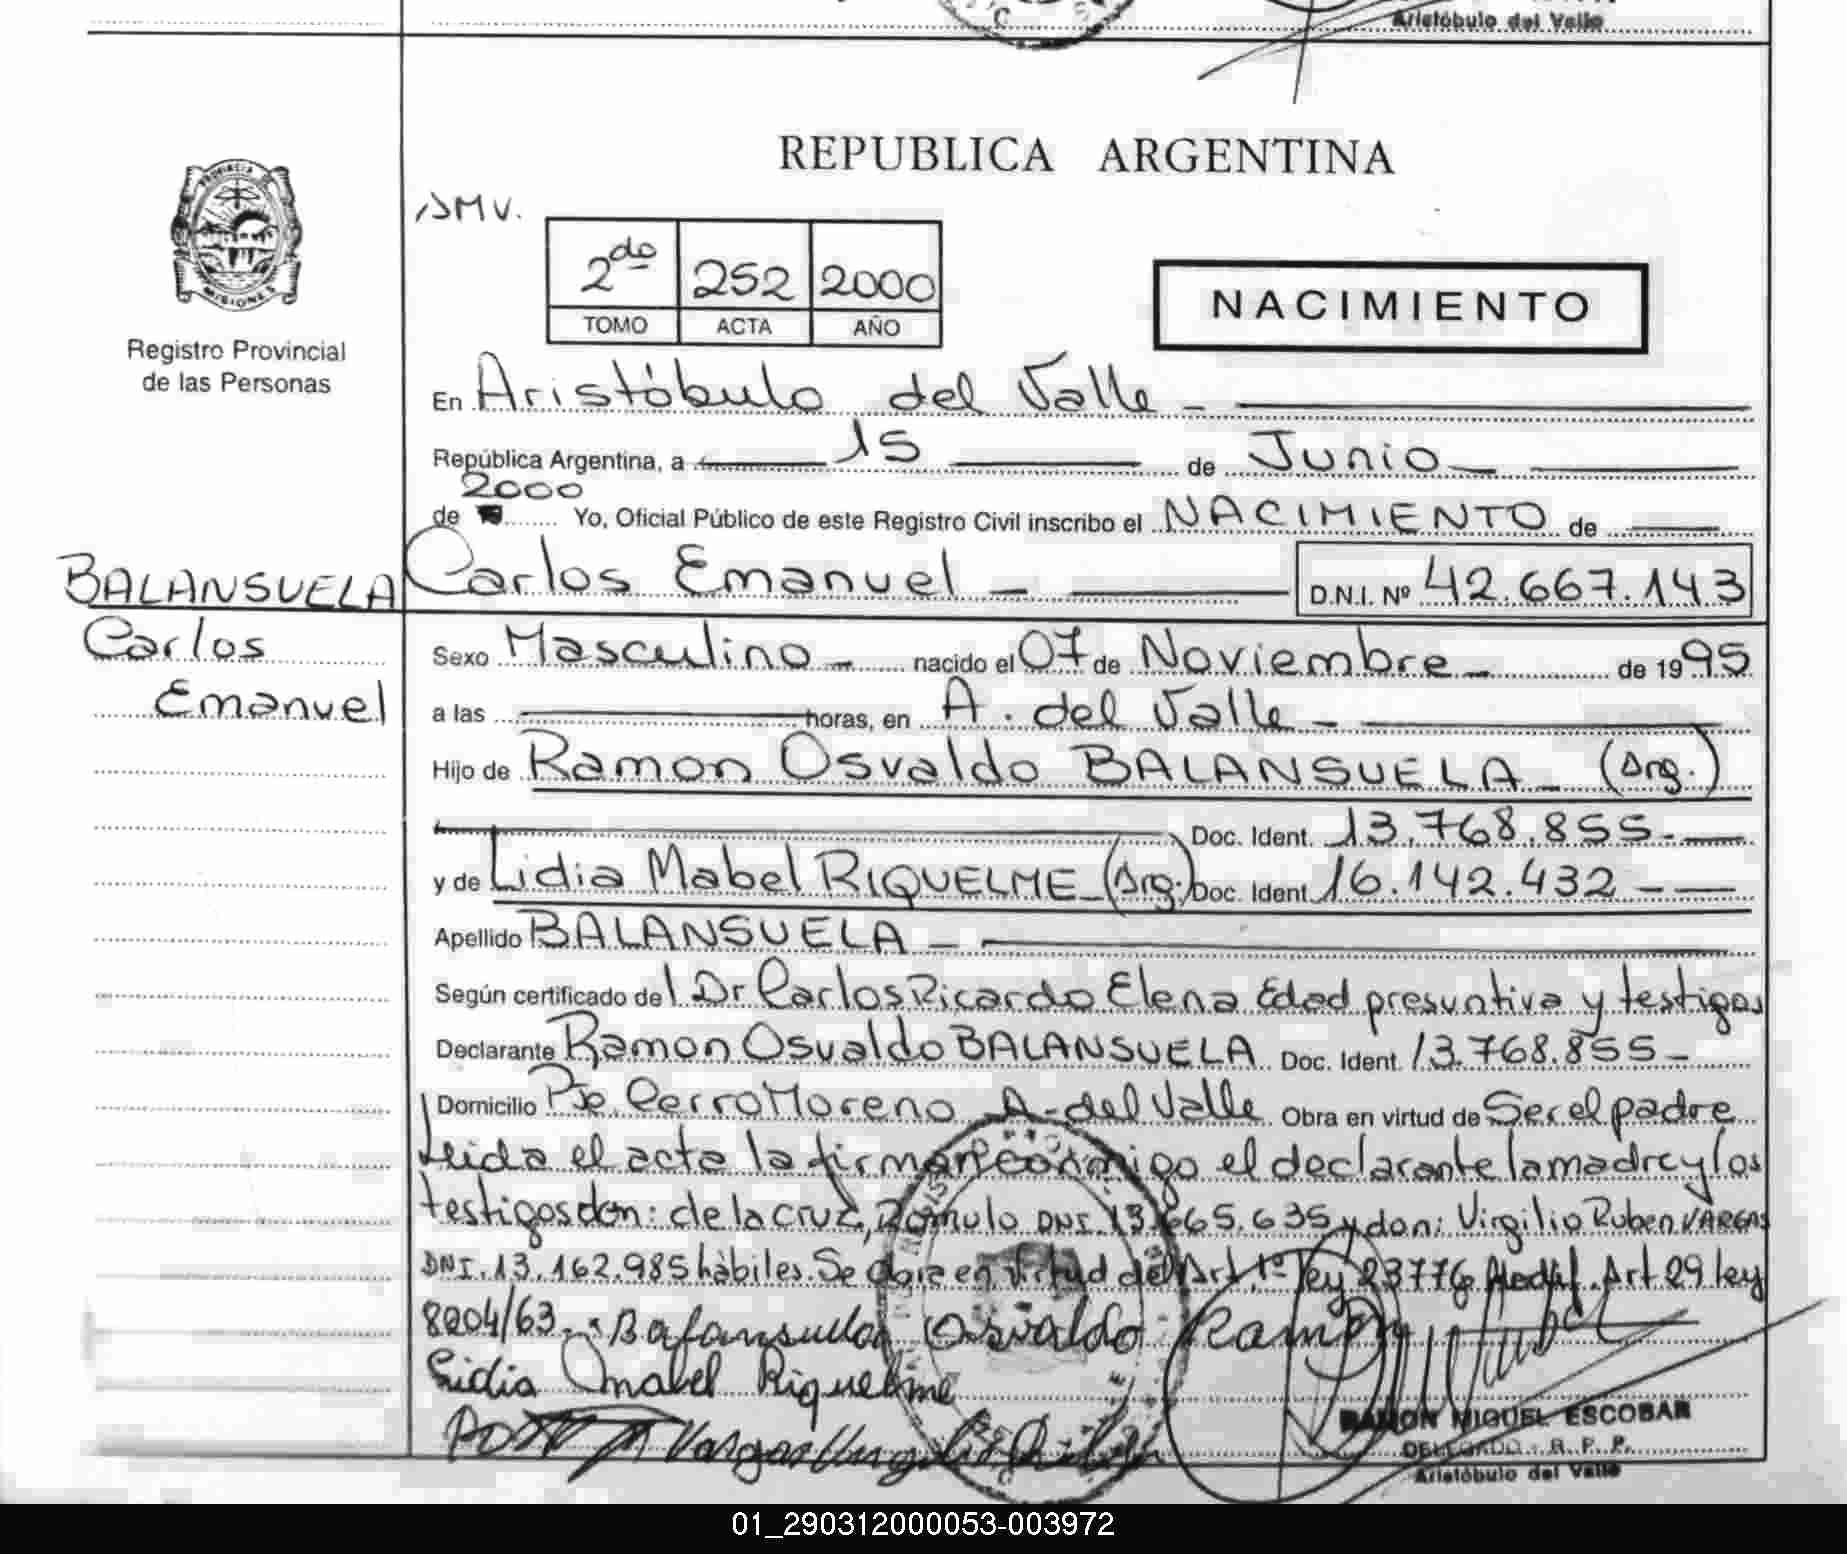 Aristóbulo del Valle
REPUBLICA ARGENTINA
PROVINCIA DE
MISIONES
Registro Provincial
de las Personas
SMV.
2do 252 2000
TOMO ACTA AÑO
NACIMIENTO
En Aristóbulo del Valle -
República Argentina, a 15 de Junio
2000
de Yo, Oficial Público de este Registro Civil inscribo el NACIMIENTO de
BALANSUELA
Carlos
Emanuel
Carlos Emanuel - D.N.I. Nº 42.667.143
Sexo Masculino - nacido el 07 de Noviembre - de 1995
a las horas, en A. del Valle -
Hijo de Ramon Osvaldo BALANSUELA - (Arg.)
Doc. Ident. 13.768.855-
y de Lidia Mabel RIQUELME - (Arg.) Doc. Ident. 16.142.432 -
Apellido BALANSUELA -
Según certificado del Dr Carlos Ricardo Elena Edad presuntiva y testigos
Declarante Ramon Osvaldo BALANSUELA Doc. Ident. 13.768.855-
Domicilio Pje Cerro Moreno A. del Valle Obra en virtud de Ser el padre
Leida el acta la firman conmigo el declarante la madre y los
testigos don: de la cruz, Romulo DNI. 13.665.635 y don: Virgilio Ruben VARGAS
DNI. 13.162.985 hábiles. Se obra en virtud del Art. 1º ley 23776 Modif. Art 29 ley
8204/63.- Balansuela Osvaldo Ramon
Lidia Mabel Riquelme
Vargas Virgilio
RAMON MIGUEL ESCOBAR
DELEGADO - R. P. P.
Aristóbulo del Valle
01_290312000053-003972